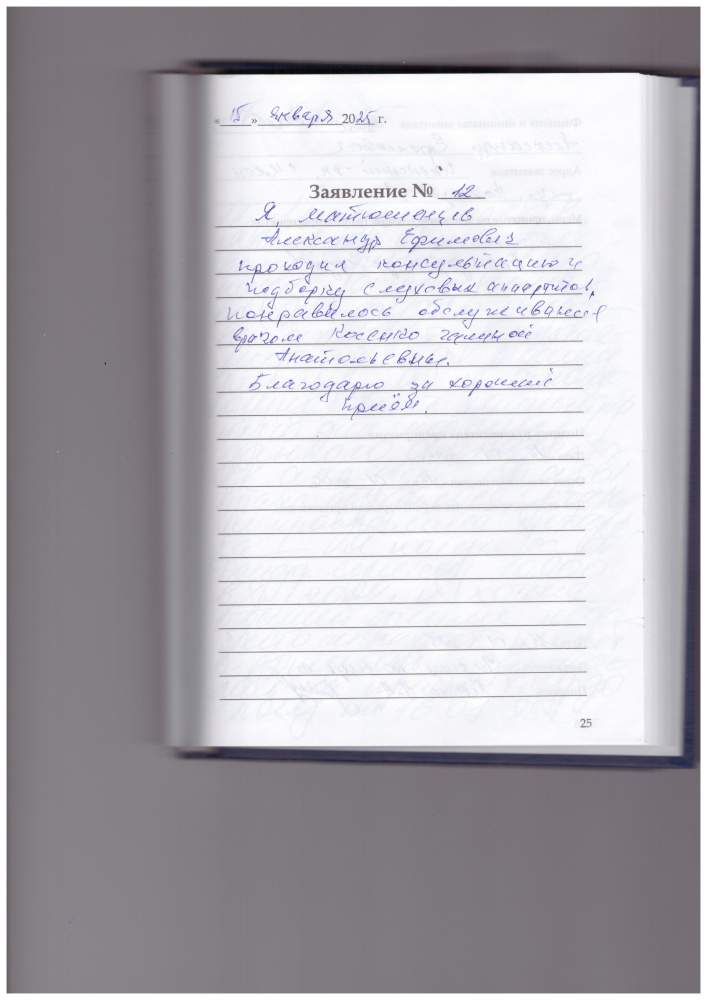 « 15 » января 2025 г.
Заявление № 12
Я, Матюшенцев
Александр Ефимович
проходил консультацию и
подборку слуховых аппаратов,
понравилось обслуживание
врачом Косенко Галиной
Анатольевны.
Благодарю за хороший
приём.
25